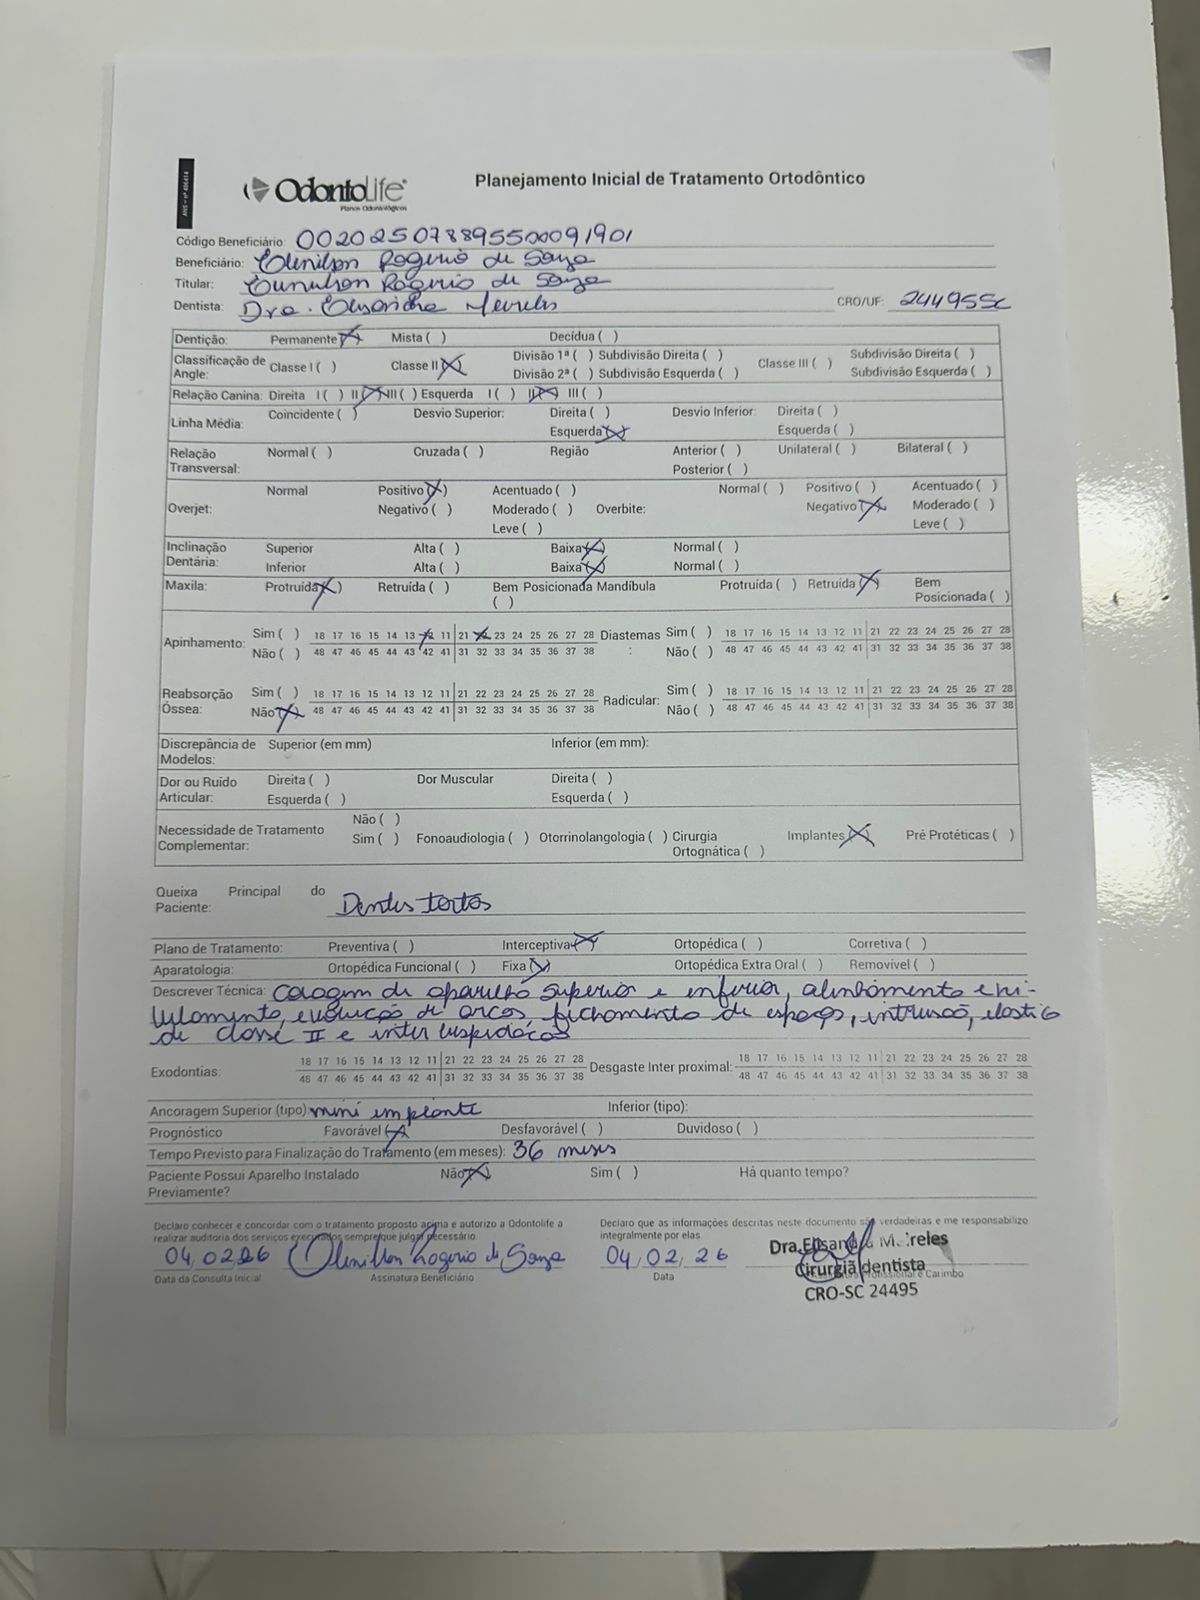 ANS – nº 406414
OdontoLife
Planos Odontológicos
Planejamento Inicial de Tratamento Ortodôntico
Código Beneficiário: 00202507889550091901
Beneficiário: Rogerio de Souza
Titular: Rogerio de Souza
Dentista: Dra. Elisandra Meireles CRO/UF: 24495SC
Dentição: Permanente (X) Mista ( ) Decídua ( )
Classificação de Angle: Classe I ( ) Classe II (X) Divisão 1ª ( ) Subdivisão Direita ( ) Classe III ( ) Subdivisão Direita ( )
Divisão 2ª ( ) Subdivisão Esquerda ( ) Subdivisão Esquerda ( )
Relação Canina: Direita I ( ) II (X) III ( ) Esquerda I ( ) II (X) III ( )
Linha Média: Coincidente ( ) Desvio Superior: Direita ( ) Desvio Inferior: Direita ( )
Esquerda (X) Esquerda ( )
Relação Transversal: Normal ( ) Cruzada ( ) Região Anterior ( ) Unilateral ( ) Bilateral ( )
Posterior ( )
Overjet: Normal Positivo (X) Acentuado ( ) Overbite: Normal ( ) Positivo ( ) Acentuado ( )
Negativo ( ) Moderado ( ) Negativo (X) Moderado ( )
Leve ( ) Leve ( )
Inclinação Dentária: Superior Alta ( ) Baixa (X) Normal ( )
Inferior Alta ( ) Baixa (X) Normal ( )
Maxila: Protruída (X) Retruída ( ) Bem Posicionada ( ) Mandíbula Protruída ( ) Retruída (X) Bem Posicionada ( )
Apinhamento: Sim ( ) 18 17 16 15 14 13 12 11 21 22 23 24 25 26 27 28 Diastemas : Sim ( ) 18 17 16 15 14 13 12 11 21 22 23 24 25 26 27 28
Não ( ) 48 47 46 45 44 43 42 41 31 32 33 34 35 36 37 38 Não ( ) 48 47 46 45 44 43 42 41 31 32 33 34 35 36 37 38
Reabsorção Óssea: Sim ( ) 18 17 16 15 14 13 12 11 21 22 23 24 25 26 27 28 Radicular: Sim ( ) 18 17 16 15 14 13 12 11 21 22 23 24 25 26 27 28
Não (X) 48 47 46 45 44 43 42 41 31 32 33 34 35 36 37 38 Não ( ) 48 47 46 45 44 43 42 41 31 32 33 34 35 36 37 38
Discrepância de Modelos: Superior (em mm) Inferior (em mm):
Dor ou Ruido Articular: Direita ( ) Dor Muscular Direita ( )
Esquerda ( ) Esquerda ( )
Necessidade de Tratamento Complementar: Não ( )
Sim ( ) Fonoaudiologia ( ) Otorrinolangologia ( ) Cirurgia Ortognática ( ) Implantes (X) Pré Protéticas ( )
Queixa Principal do Paciente: Dentes tortos
Plano de Tratamento: Preventiva ( ) Interceptiva (X) Ortopédica ( ) Corretiva ( )
Aparatologia: Ortopédica Funcional ( ) Fixa (X) Ortopédica Extra Oral ( ) Removível ( )
Descrever Técnica: Colagem de aparelho superior e inferior, alinhamento e ni-
velamento, evolução de arcos, fechamento de espaços, intrusão, elastico
de classe II e intercuspidação
Exodontias: 18 17 16 15 14 13 12 11 21 22 23 24 25 26 27 28 Desgaste Inter proximal: 18 17 16 15 14 13 12 11 21 22 23 24 25 26 27 28
48 47 46 45 44 43 42 41 31 32 33 34 35 36 37 38 48 47 46 45 44 43 42 41 31 32 33 34 35 36 37 38
Ancoragem Superior (tipo): mini implante Inferior (tipo):
Prognóstico Favorável (X) Desfavorável ( ) Duvidoso ( )
Tempo Previsto para Finalização do Tratamento (em meses): 36 meses
Paciente Possui Aparelho Instalado Previamente? Não (X) Sim ( ) Há quanto tempo?
Declaro conhecer e concordar com o tratamento proposto acima e autorizo a Odontolife a
realizar auditoria dos serviços executados sempre que julgar necessário
Declaro que as informações descritas neste documento são verdadeiras e me responsabilizo
integralmente por elas.
04,02,26 Rogerio de Souza 04,02,26
Data da Consulta Inicial Assinatura Beneficiário Data Assinatura Profissional e Carimbo
Dra. Elisandra Meireles
Cirurgiã dentista
CRO-SC 24495